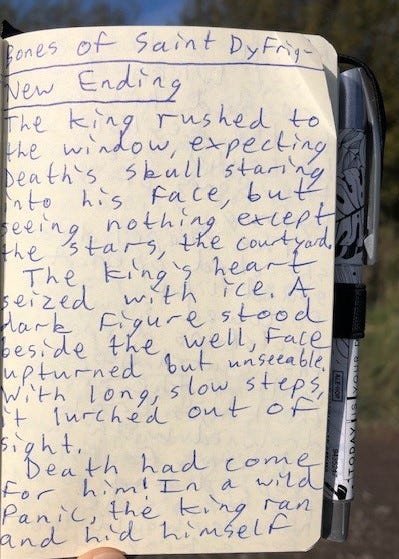 Bones of Saint DyFrig-
New Ending
The king rushed to
the window, expecting
Death's skull staring
into his face, but
seeing nothing except
the stars, the courtyard.
The king's heart
seized with ice. A
dark figure stood
beside the well, face
upturned but unseeable.
With long, slow steps,
it lurched out of
sight.
Death had come
for him! In a wild
panic, the king ran
and hid himself
TODAY IS YOUR